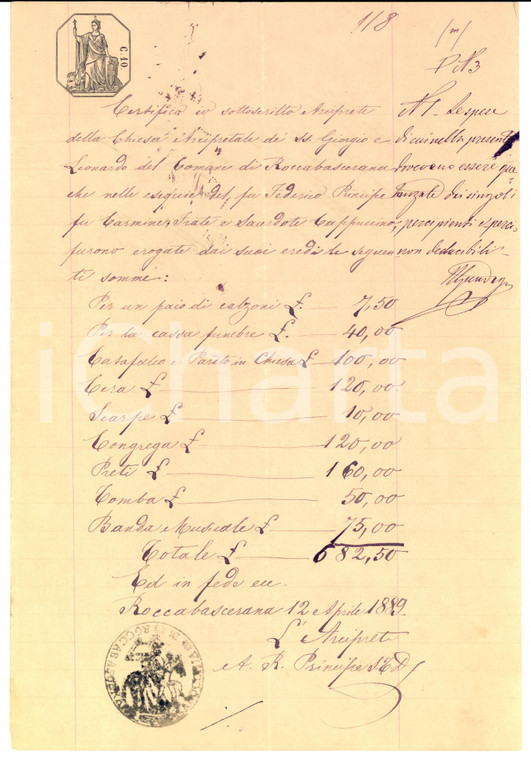 118
C. 10
(m)
P N 3
Certifico io sottoscritto Arciprete
della Chiesa Arcipretale di SS Giorgio e
Leonardo del Comune di Roccabascerana
che nelle esequie del fu Federico Principe
fu Carmine, Frate e Sacerdote Cappuccino,
furono erogate dai suoi eredi le seguen
ti somme:
N 1. Le spese
di cui nella presente
dovevano essere qui
tanzate dai singoli
percipienti e perciò
non deducibili
Per un paio di calzoni £. 7,50
Per la cassa funebre £. 40,00
Catafalco e Parato in Chiesa £ 100,00
Cera £ 120,00
Scarpe £ 10,00
Congrega £ 120,00
Preti £ 160,00
Tomba £ 50,00
Banda Musicale £ 75,00
Totale £ 682,50
Ed in fede ecc.
Roccabascerana 12 Aprile 1889.
L'Arciprete
A. R. Principe
iCharta